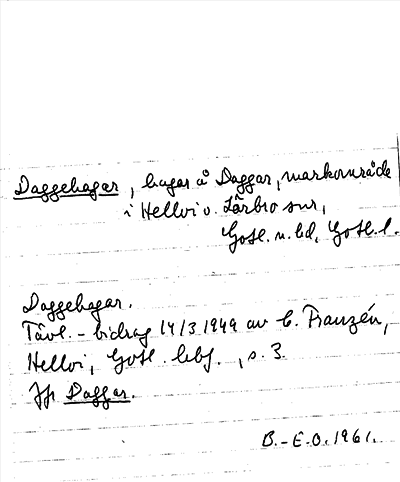 Daggehagar, hagar å Daggar, markområde
i Hellvi o. Lärbro snr,
Gotl. n. hd, Gotl. l.
Daggehagar.
Tävl.-bidrag 14/3 1949 av C. Franzén,
Hellvi, Gotl. , s. 3.
Jfr Daggar.
B.-E.O. 1961.